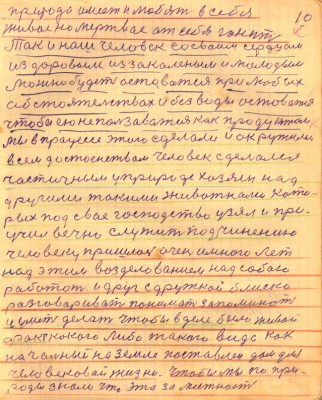 природе имеет и любят в себя
10
живае но мертвае от себя гонют
Так и наш человек со своим сердцем
из доровым из закаленым и молодым
Можно будет оставатся при любых
обстоятелствах и без воды оставатся
чтобы ею не ползаватся как продуктом
мы в працесе этого сделали и окружили
всем достоенствам человек сделался
частичным у природе хозяен над
другими такими животнами. Кото-
рых под свае господство узял и при-
учил вечно служит подчинению
человеку, пришлос очен много лет
над этим возделованием над собою
работат. и друг с дружкой блиско
разговариват понимат запоминат
и умет делат чтобы в деле был живой
факт какого либо такого вида как
началный на земле поставлен дом для
человековай жизни. Чтобы мы по при-
роды знали что это за местност